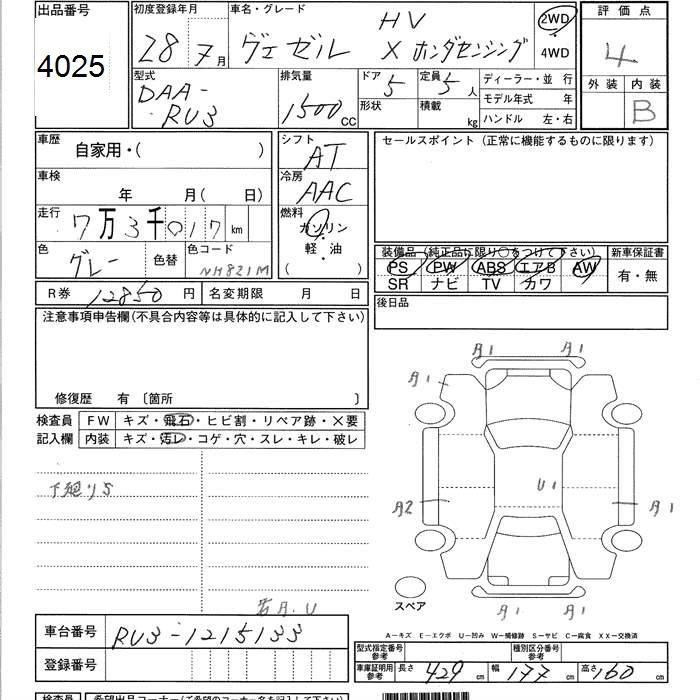 出品番号
4025
初度登録年月
28 7月
車名・グレード
HV
ヴェゼル X ホンダセンシング
2WD
4WD
評価点
4
外装 内装
B
型式
DAA-
RU3
排気量
1500cc
ドア 5
形状
定員 5人
積載 kg
ディーラー・並行
モデル年式 年
ハンドル 左・右
車歴
自家用・( )
車検
年 月( 日)
走行
7万3千017km
色
グレー
色替
色コード
NH821M
シフト
AT
冷房
AAC
燃料
ガソリン
軽・油
( )
セールスポイント(正常に機能するものに限ります)
装備品(純正品に限り○をつけて下さい)
PS PW ABS エアB AW
SR ナビ TV カワ
新車保証書
有・無
後日品
R券 12850円
名変期限 月 日
注意事項申告欄(不具合内容等は具体的に記入して下さい)
修復歴 有〔箇所 〕
検査員
記入欄
FW キズ・飛石・ヒビ割・リペア跡・X要
内装 キズ・汚レ・コゲ・穴・スレ・キレ・破レ
下廻りS
A1 A1
A1
U1
A2
A1
A1 A1
スペア
A-キズ E-エクボ U-凹み W-補修跡 S-サビ C-腐食 XX-交換済
車台番号 RU3-1215133
登録番号
型式指定番号
参考
種別区分番号
参考
車庫証明用
参考
長さ 429cm 幅 177cm 高さ 160cm
検査員
希望出品コーナー(ご希望のコーナー名を記入